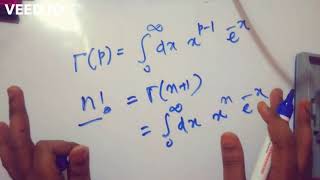 VEED.IO
Γ(p) = ∫₀^∞ dx x^{p-1} e^{-x}
n! = Γ(n+1)
= ∫₀^∞ dx x^n e^{-x}